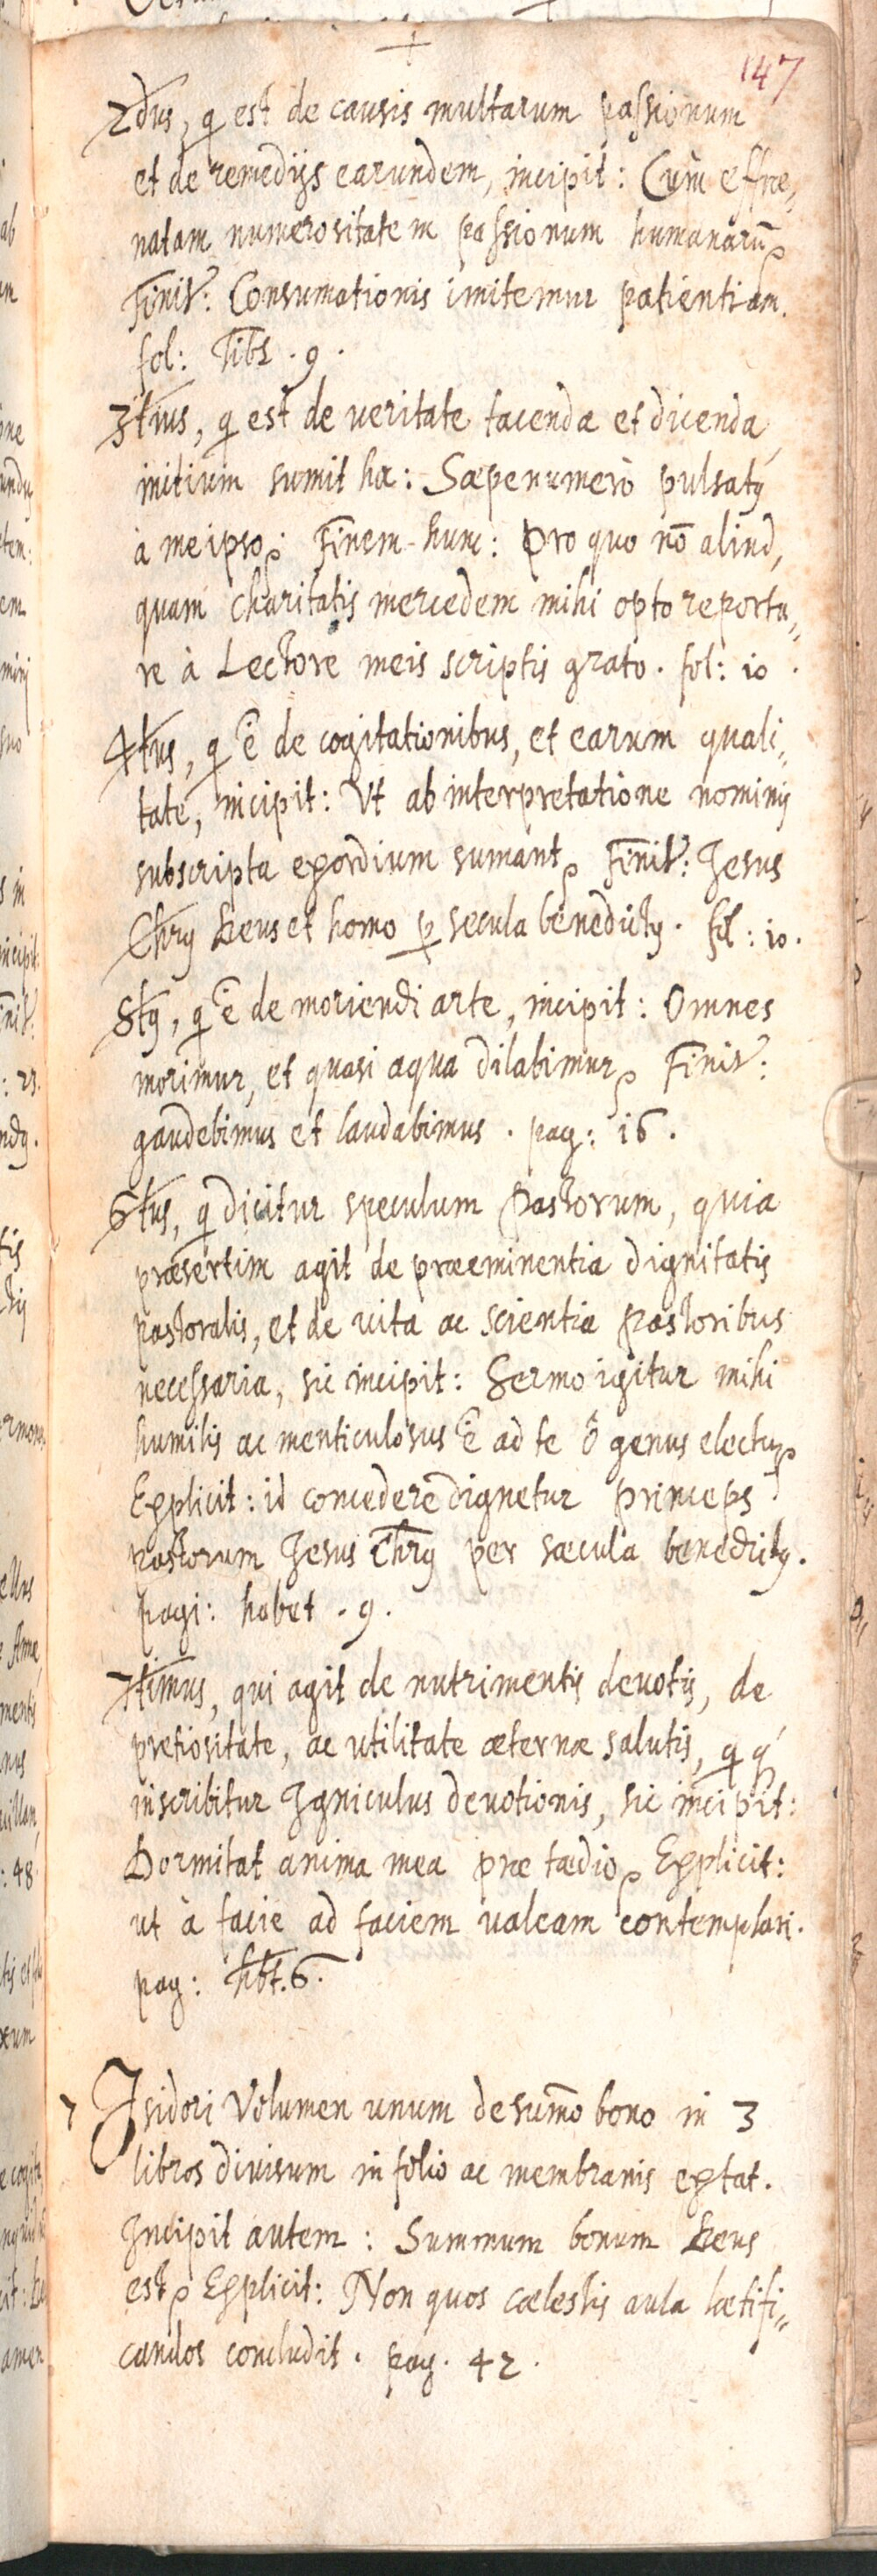 147
2dus, q est de causis multarum passionum
et de remedijs earundem, incipit: Cùm effre„
natam numerositatem passionum humanarū
Finit: Consumationis imitemur patientiam.
fol: 9.
3tius, q est de veritate tacenda et dicenda,
initium sumit hæ: Sæpenumerò pulsatꝰ
à meipso. Finem hunc: Pro quo nō aliud,
quam charitatis mercedem mihi opto reporta„
re à Lectore meis scriptis grato. fol: 10.
4tus, q ē de cogitationibus, et earum quali„
tate, incipit: Ut ab interpretatione nominis
subscripta exordium sumant. Finit: Jesus
Chrꝰ Deus et homo ꝑ secula benedictꝰ. fol: 10.
5tꝰ, q ē de moriendi arte, incipit: Omnes
morimur, et quasi aqua dilabimur. Finit:
gaudebimus et laudabimus. pag: 16.
6tus, q dicitur speculum Pastorum, quia
præsertim agit de præeminentia dignitatis
pastoralis, et de vita ac scientia Pastoribus
necessaria, sic incipit: Sermo igitur mihi
humilis ac menticulosus ē ad te ô genus electu
Explicit: id concedere dignetur princeps
pastorum Jesus Chrꝰ per sæcula benedictꝰ.
pagi: habet. 9.
7timus, qui agit de nutrimentis devotis, de
pretiositate, ac utilitate æternæ salutis, q qꝫ
inscribitur Igniculus devotionis, sic incipit:
Dormitat anima mea præ tædio. Explicit:
ut à facie ad faciem valeam contemplari.
pag: hbt. 6.
7 Isidori Volumen unum de sum̄o bono in 3
libros divisum in folio ac membranis extat.
Incipit autem: Summum bonum Deus
est. Explicit: Non quos cælestis aula lætifi„
candos concludit. pag. 42.